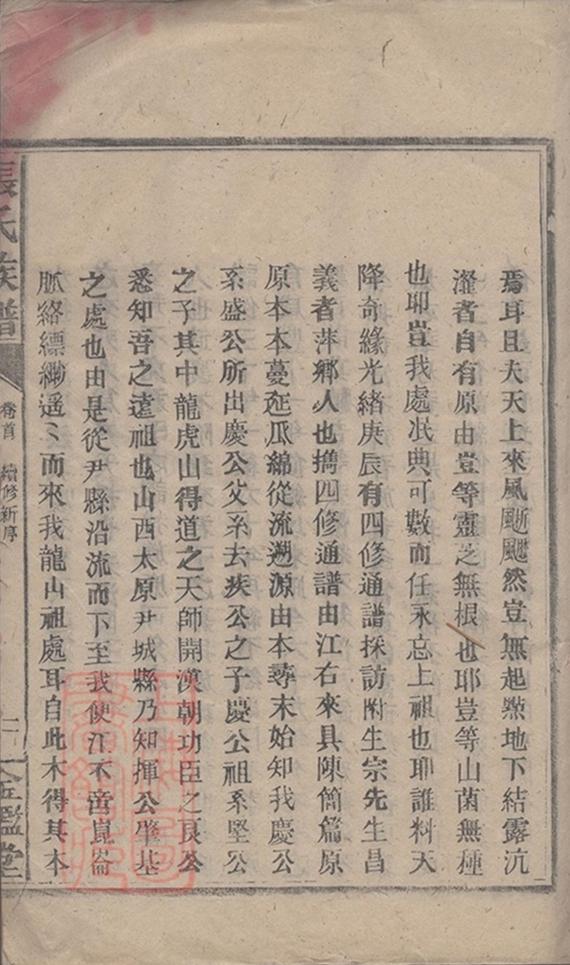 焉耳且夫天上來風颳颼然豈無起點地下結露沆
瀣者自有原由豈等靈芝無根也耶豈等山菌無種
也耶豈我處泯典可數而任永忘上祖也耶誰料天
降奇緣光緒庚辰有四修通譜採訪附生宗先生昌
義者萍鄉人也擕四修通譜由江右來具陳簡篇原
原本本蔓延瓜綿從流溯源由本尋末始知我慶公
系盛公所出慶公父系去疾公之子慶公祖系堅公
之子其中龍虎山得道之天師開漢朝功臣之良公
悉知吾之遠祖也山西太原尹城縣乃知揮公肇基
之處也由是從尹縣沿流而下至我便江不啻崑崙
脈絡縹緲遥〻而來我龍山祖處耳自此木得其本
張氏族譜
卷首
續修新序
二
金鑑堂